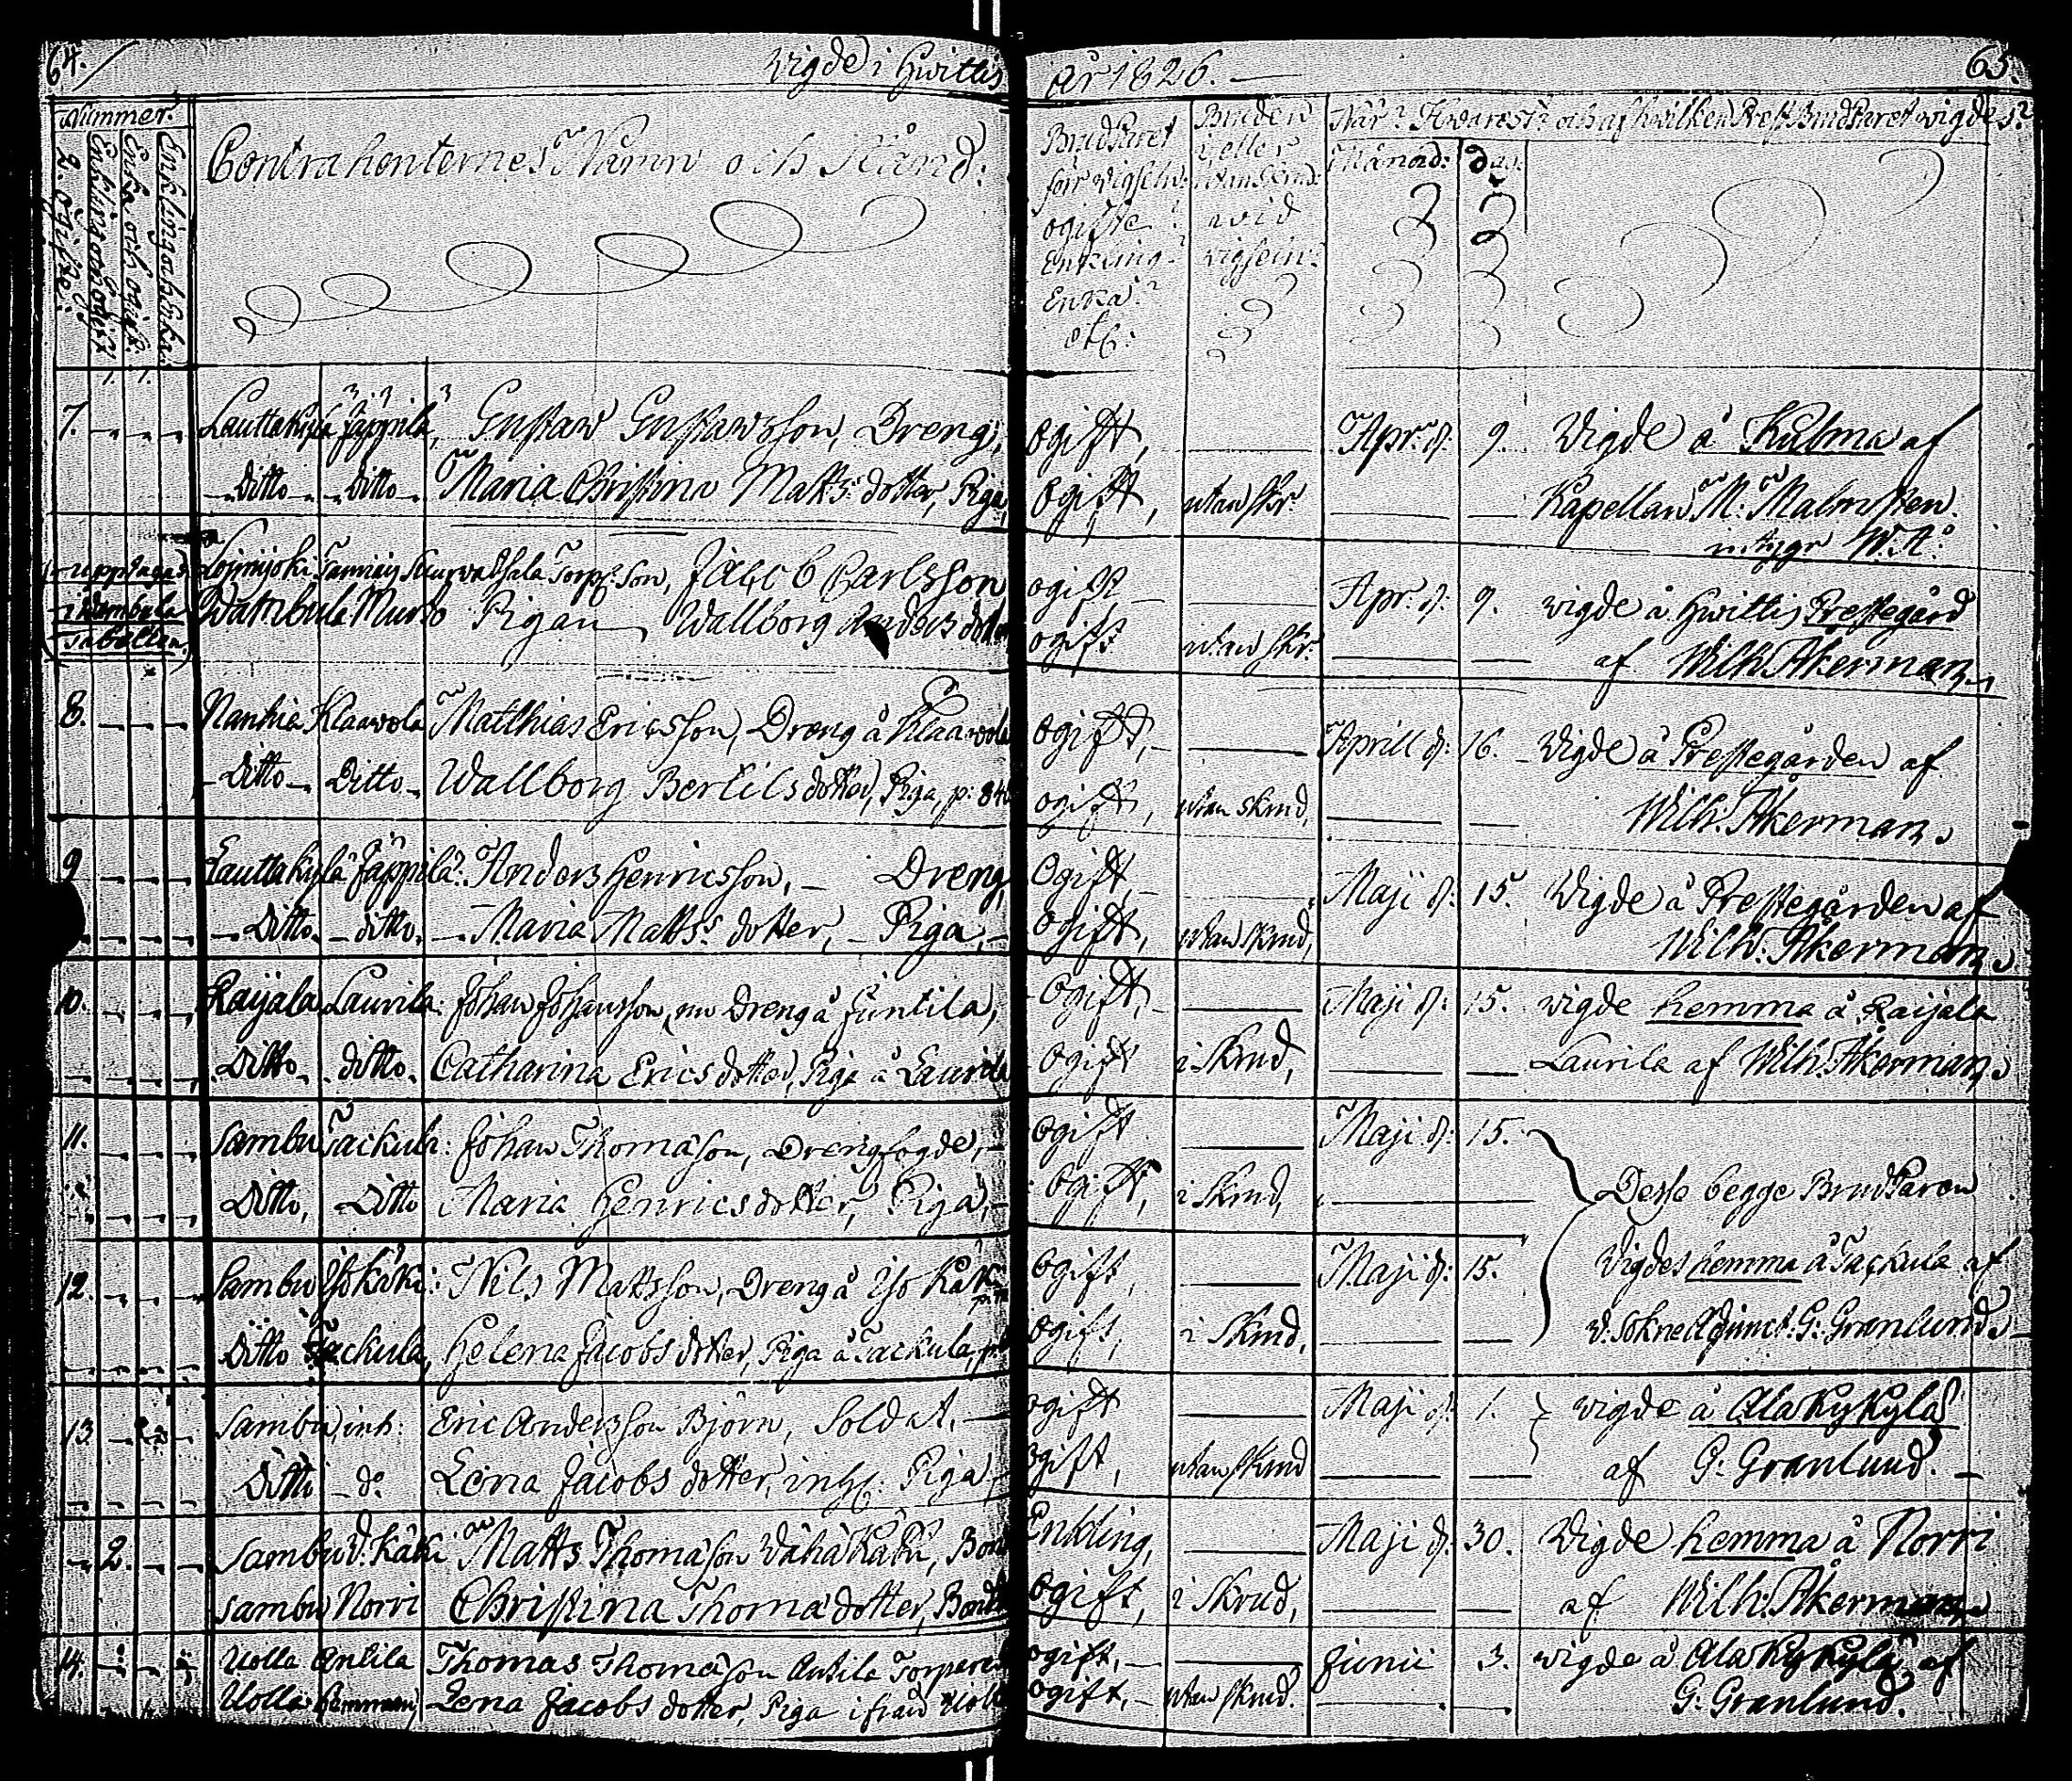 64. Vigde i Hwittis år 1826. 65.
Nummer.
2. ogifte.
Enkling och ogift.
Enka och ogift.
Enkling och Enka.
Contrahenternes Namn och Stånd.
BrudParet för vigseln: ogifte? Enkling? Enka? etc:
Bruden i, eller utan skrud: vid vigseln?
När? Hwarest? och af hwilken Prest BrudParet vigdes?
Månad: Dag:
1. 1.
7. Lauttakylä Jäppilä, Gustaw Gustawsson, Dreng, Ogift, Apr. d: 9. Vigde å Kulma af
Ditto Ditto Maria Christina Matts: dotter, Piga, Ogift, utan skr. Kapellan M: Malmsten.
intygr W.Å:
(upptages i Wambula Tabellen.) Loimijoki Torp: Son, Jacob Carlsson ogift Apr. d. 9. vigde å Hwittis Prestegård
Wambula Murto Pigan Wallborg Anders dotter ogift utan skr. af Wilh. Åkerman.
8. Nanhia Klaawola Matthias Ericsson, Dreng å Klaawola Ogift, Aprill d: 16. Vigde å Prestegården af
Ditto Ditto Wallborg Bertils dotter, Piga, p: 84 ogift, utan skrud, Wilh. Åkerman.
9 Lauttakylä Jäppilä: Anders Henricsson, Dreng, Ogift, Maji d: 15. Vigde å Prestegården af
Ditto ditto. Maria Matts: dotter, Piga, Ogift, utan skrud, Wilh. Åkerman.
10. Raijala Laurila: Johan Johansson, nu Dreng å Juntila, Ogift, Maji d: 15. vigde hemma å Raijala
Ditto ditto. Catharina Ericsdotter, Piga å Laurila Ogift i Skrud, Laurila af Wilh. Åkerman.
11. Sambu Tackula: Johan Thomasson, Drengfogde, Ogift Maji d: 15.
Ditto, Ditto Maria Henricsdotter, Piga, Ogift, i Skrud, Desse begge BrudParen
12. Sambu Isokäki: Nils Mattsson, Dreng å Iso Käki Ogift, Maji d: 15. Vigdes hemma å Tackula af
Ditto Tackula, Helena Jacobs dotter, Piga å Tackula, Ogift, i Skrud, v: Sokne Adjunct: G: Granlund.
13 Sambu, inh: Eric Andersson Björn, Soldat, Ogift Maji d. 1. vigde å Ala Kykylä
Ditto do Lena Jacobs dotter, inh: Piga, Ogift, utan skrud af G: Granlund.
2. Sambu V: Käki Matts Thomasson Wähä Käki, Bonde Enkling, Maji d: 30. Vigde hemma å Norri
Sambu Norri Christina Thomae dotter, Bonde Ogift, i Skrud, af Wilh: Åkerman.
14. Uolla Antila Thomas Thomasson Antila Torpare ogift, Junii 3. vigde å Ala Kykylä af
Uolla Lena Jacobs dotter, Piga ifrån Uolla ogift, utan skrud. G: Granlund.